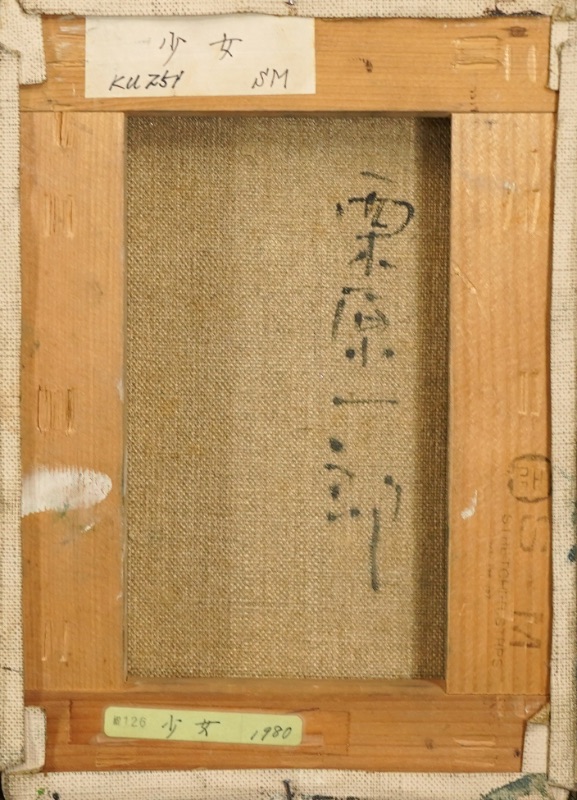 少女
KUZ51 SM
栗原一郎
S-M
126 少女 1980